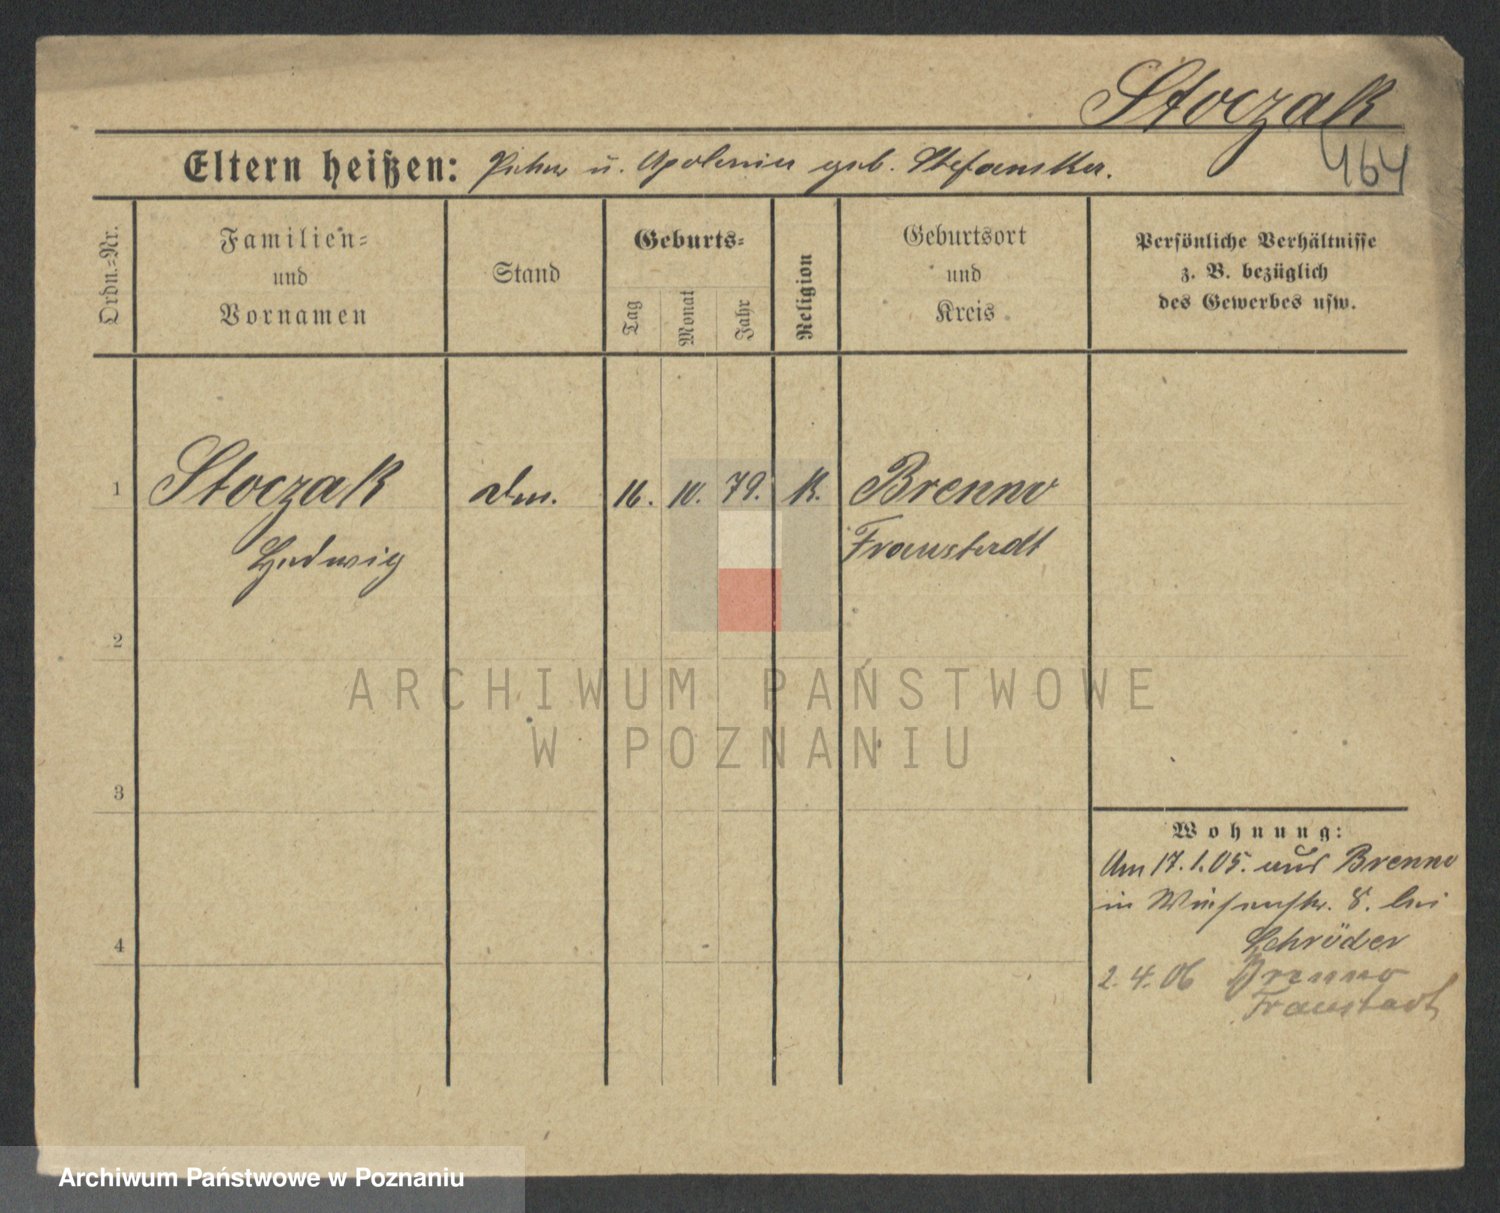 Stoczak
464
Eltern heißen: Peter u. Apolonia geb. Stefanska.
Ordn.-Nr.
Familien-
und
Vornamen
Stand
Geburts-
Tag
Monat
Jahr
Religion
Geburtsort
und
Kreis
Persönliche Verhältnisse
z. B. bezüglich
des Gewerbes usw.
1 Stoczak 16. 10. 79. K. Brenno
Hedwig Fraustadt
2
3
4
Wohnung:
Am 17.1.05. aus Brenno
in Wiesenstr. 8. bei
Schröder
2.4.06 Brenno
Fraustadt
ARCHIWUM PAŃSTWOWE
W POZNANIU
Archiwum Państwowe w Poznaniu